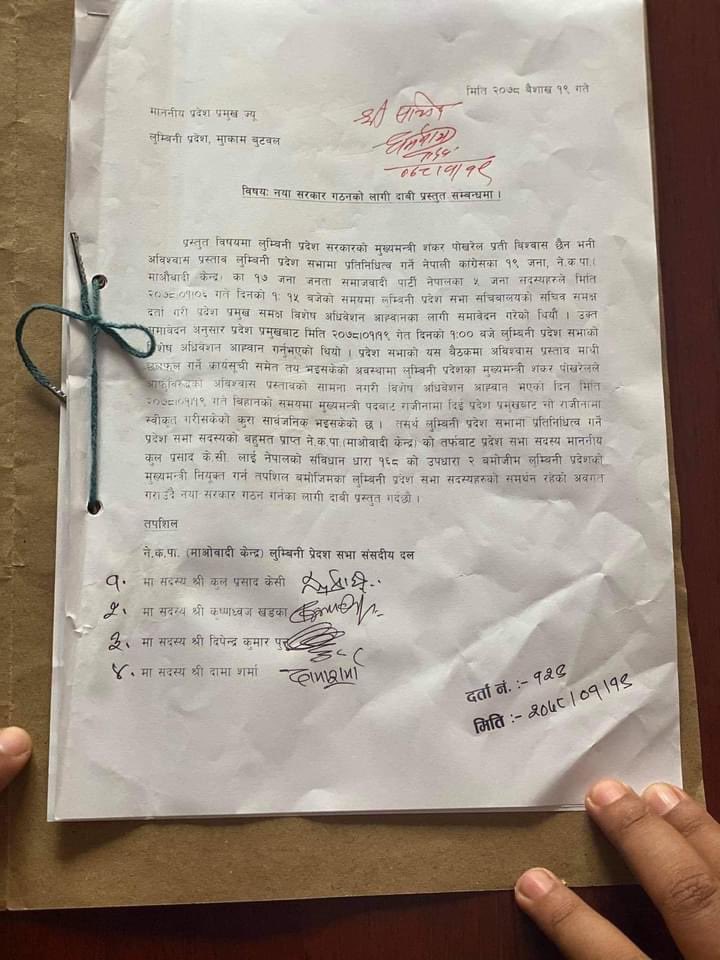 मिति २०७८ बैशाख १९ गते
माननीय प्रदेश प्रमुख ज्यू
लुम्बिनी प्रदेश, मुकाम बुटवल
श्री
०७८।१।१९
विषयः नया सरकार गठनको लागी दाबी प्रस्तुत सम्बन्धमा ।
प्रस्तुत विषयमा लुम्बिनी प्रदेश सरकारको मुख्यमन्त्री शंकर पोखरेल प्रती विश्वास छैन भनी
अविश्वास प्रस्ताव लुम्बिनी प्रदेश सभामा प्रतिनिधित्व गर्ने नेपाली कांग्रेसका १९ जना, ने.क.पा.(
माओवादी केन्द्र) का १७ जना जनता समाजवादी पार्टी नेपालका ५ जना सदस्यहरुले मिति
२०७८।०१।०६ गते दिनको १ः १५ बजेको समयमा लुम्बिनी प्रदेश सभा सचिबालयको सचिव समक्ष
दर्ता गरी प्रदेश प्रमुख समक्ष विशेष अधिवेशन आह्वानका लागी समावेदन गरेको थियौं । उक्त
समावेदन अनुसार प्रदेश प्रमुखबाट मिति २०७८।०१।१९ गेत दिनको १:०० बजे लुम्बिनी प्रदेश सभाको
विशेष अधिवेशन आह्वान गर्नुभएको थियो । प्रदेश सभाको यस बैठकमा अविश्वास प्रस्ताव माथी
छलफल गर्ने कार्यसूची समेत तय भइसकेको अवस्थामा लुम्बिनी प्रदेशका मुख्यमन्त्री शंकर पोखरेलले
आफूविरुद्धको अविश्वास प्रस्तावको सामना नगरी विशेष अधिवेशन आह्वान भएको दिन मिति
२०७८।०१।१९ गते बिहानको समयमा मुख्यमन्त्री पदबाट राजीनामा दिई प्रदेश प्रमुखबाट सो राजीनामा
स्वीकृत गरीसकेको कुरा सार्वजनिक भइसकेको छ । तसर्थ लुम्बिनी प्रदेश सभामा प्रतिनिधित्व गर्ने
प्रदेश सभा सदस्यको बहुमत प्राप्त ने.क.पा.(माओवादी केन्द्र) को तर्फबाट प्रदेश सभा सदस्य माननीय
कुल प्रसाद के.सी. लाई नेपालको संविधान धारा १६८ को उपधारा २ बमोजीम लुम्बिनी प्रदेशको
मुख्यमन्त्री नियुक्त गर्न तपशिल बमोजिमका लुम्बिनी प्रदेश सभा सदस्यहरुको समर्थन रहेको अवगत
गराउँदै नया सरकार गठन गर्नका लागी दाबी प्रस्तुत गर्दछौ ।
तपशिल
ने.क.पा. (माओवादी केन्द्र) लुम्बिनी प्रेदश सभा संसदीय दल
१. मा सदस्य श्री कुल प्रसाद केसी
२. मा सदस्य श्री कृष्णध्वज खड्का
३. मा सदस्य श्री दिपेन्द्र कुमार
४. मा सदस्य श्री दामा शर्मा दामाशर्मा
दर्ता नं. :- १२९
मिति :- २०७८।०१।१९